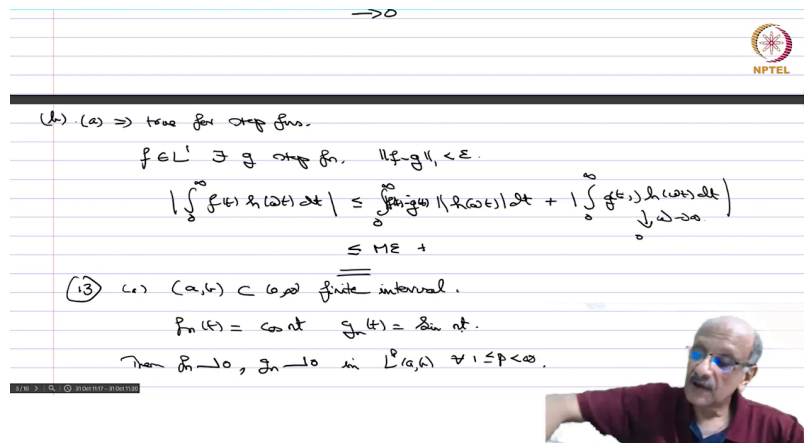 → 0
NPTEL
(b). (a) ⇒ true for step fns.
f ∈ L¹ ∃ g step fn. ‖f-g‖₁ < ε.
|∫₀^∞ f(t) h(ωt) dt| ≤ ∫₀^∞ |f(t)-g(t)| |h(ωt)| dt + |∫₀^∞ g(t) h(ωt) dt|
↓ ω→∞
0
≤ Mε +
(13) (a) (a,b) ⊂ (0,∞) finite interval.
fₙ(t) = cos nt gₙ(t) = sin nt.
Then fₙ ⇀ 0, gₙ ⇀ 0 in Lᵖ(a,b) ∀ 1 ≤ p < ∞.
3 / 10 31 Oct 11:17 - 31 Oct 11:20